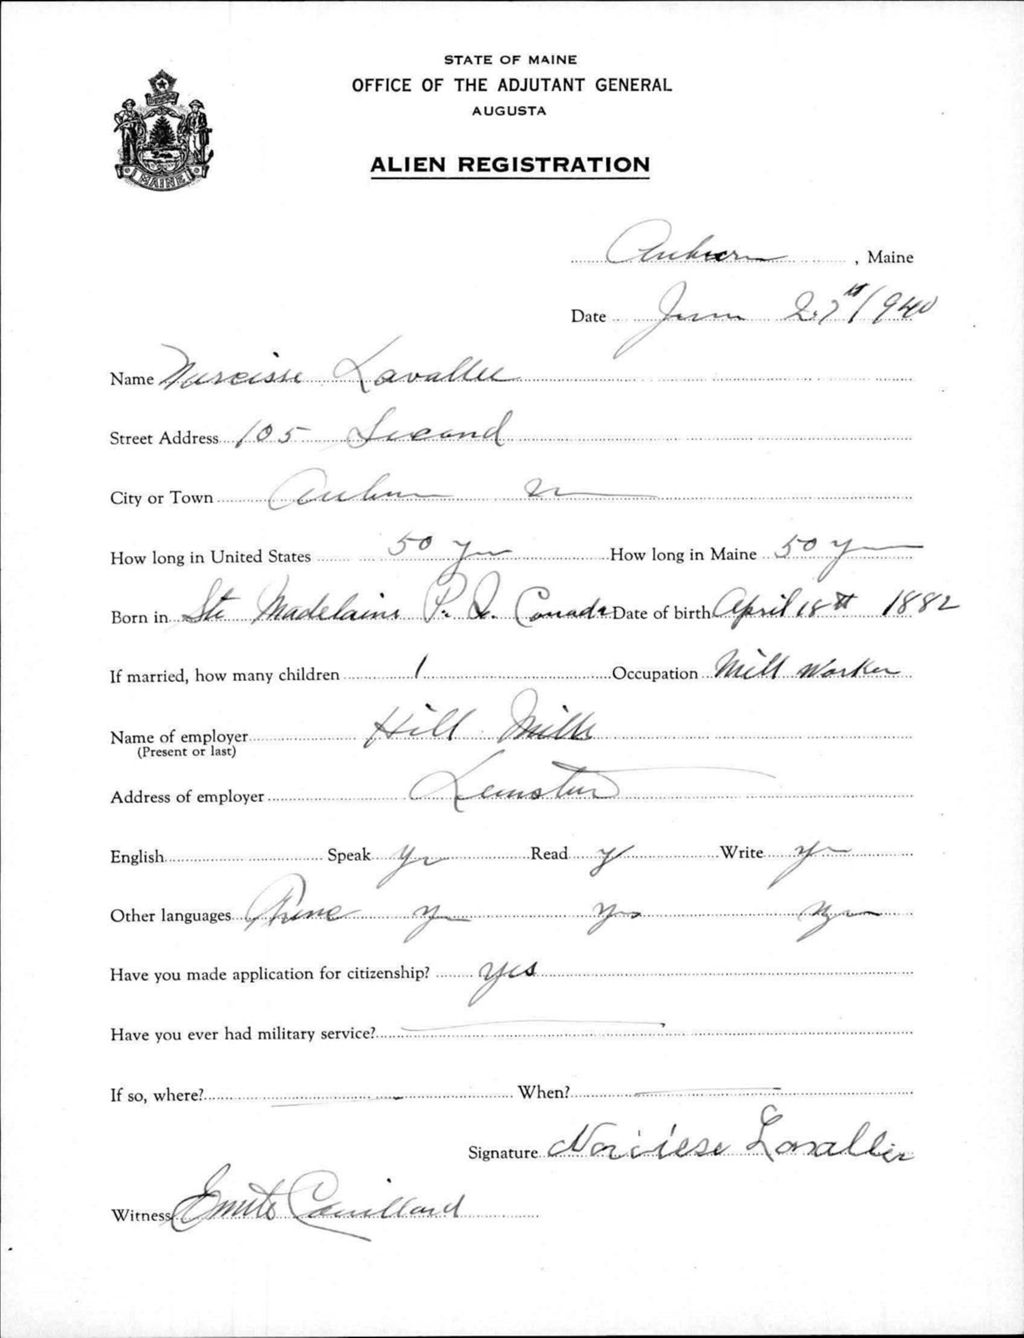 STATE OF MAINE
OFFICE OF THE ADJUTANT GENERAL
AUGUSTA
MAINE
ALIEN REGISTRATION
Auburn, Maine
Date June 27th 1940
Name Narcisse Lavallee
Street Address 105 Second
City or Town Auburn
How long in United States 50 yrs How long in Maine 50 yrs
Born in Ste Madelaine P. Q. Canada Date of birth April 18th 1882
If married, how many children 1 Occupation Mill Worker
Name of employer Hill Mills
(Present or last)
Address of employer Lewiston
English Speak yes Read y Write yes
Other languages yes yes yes
Have you made application for citizenship? yes
Have you ever had military service?
If so, where? When?
Signature Narcisse Lavallee
Witness